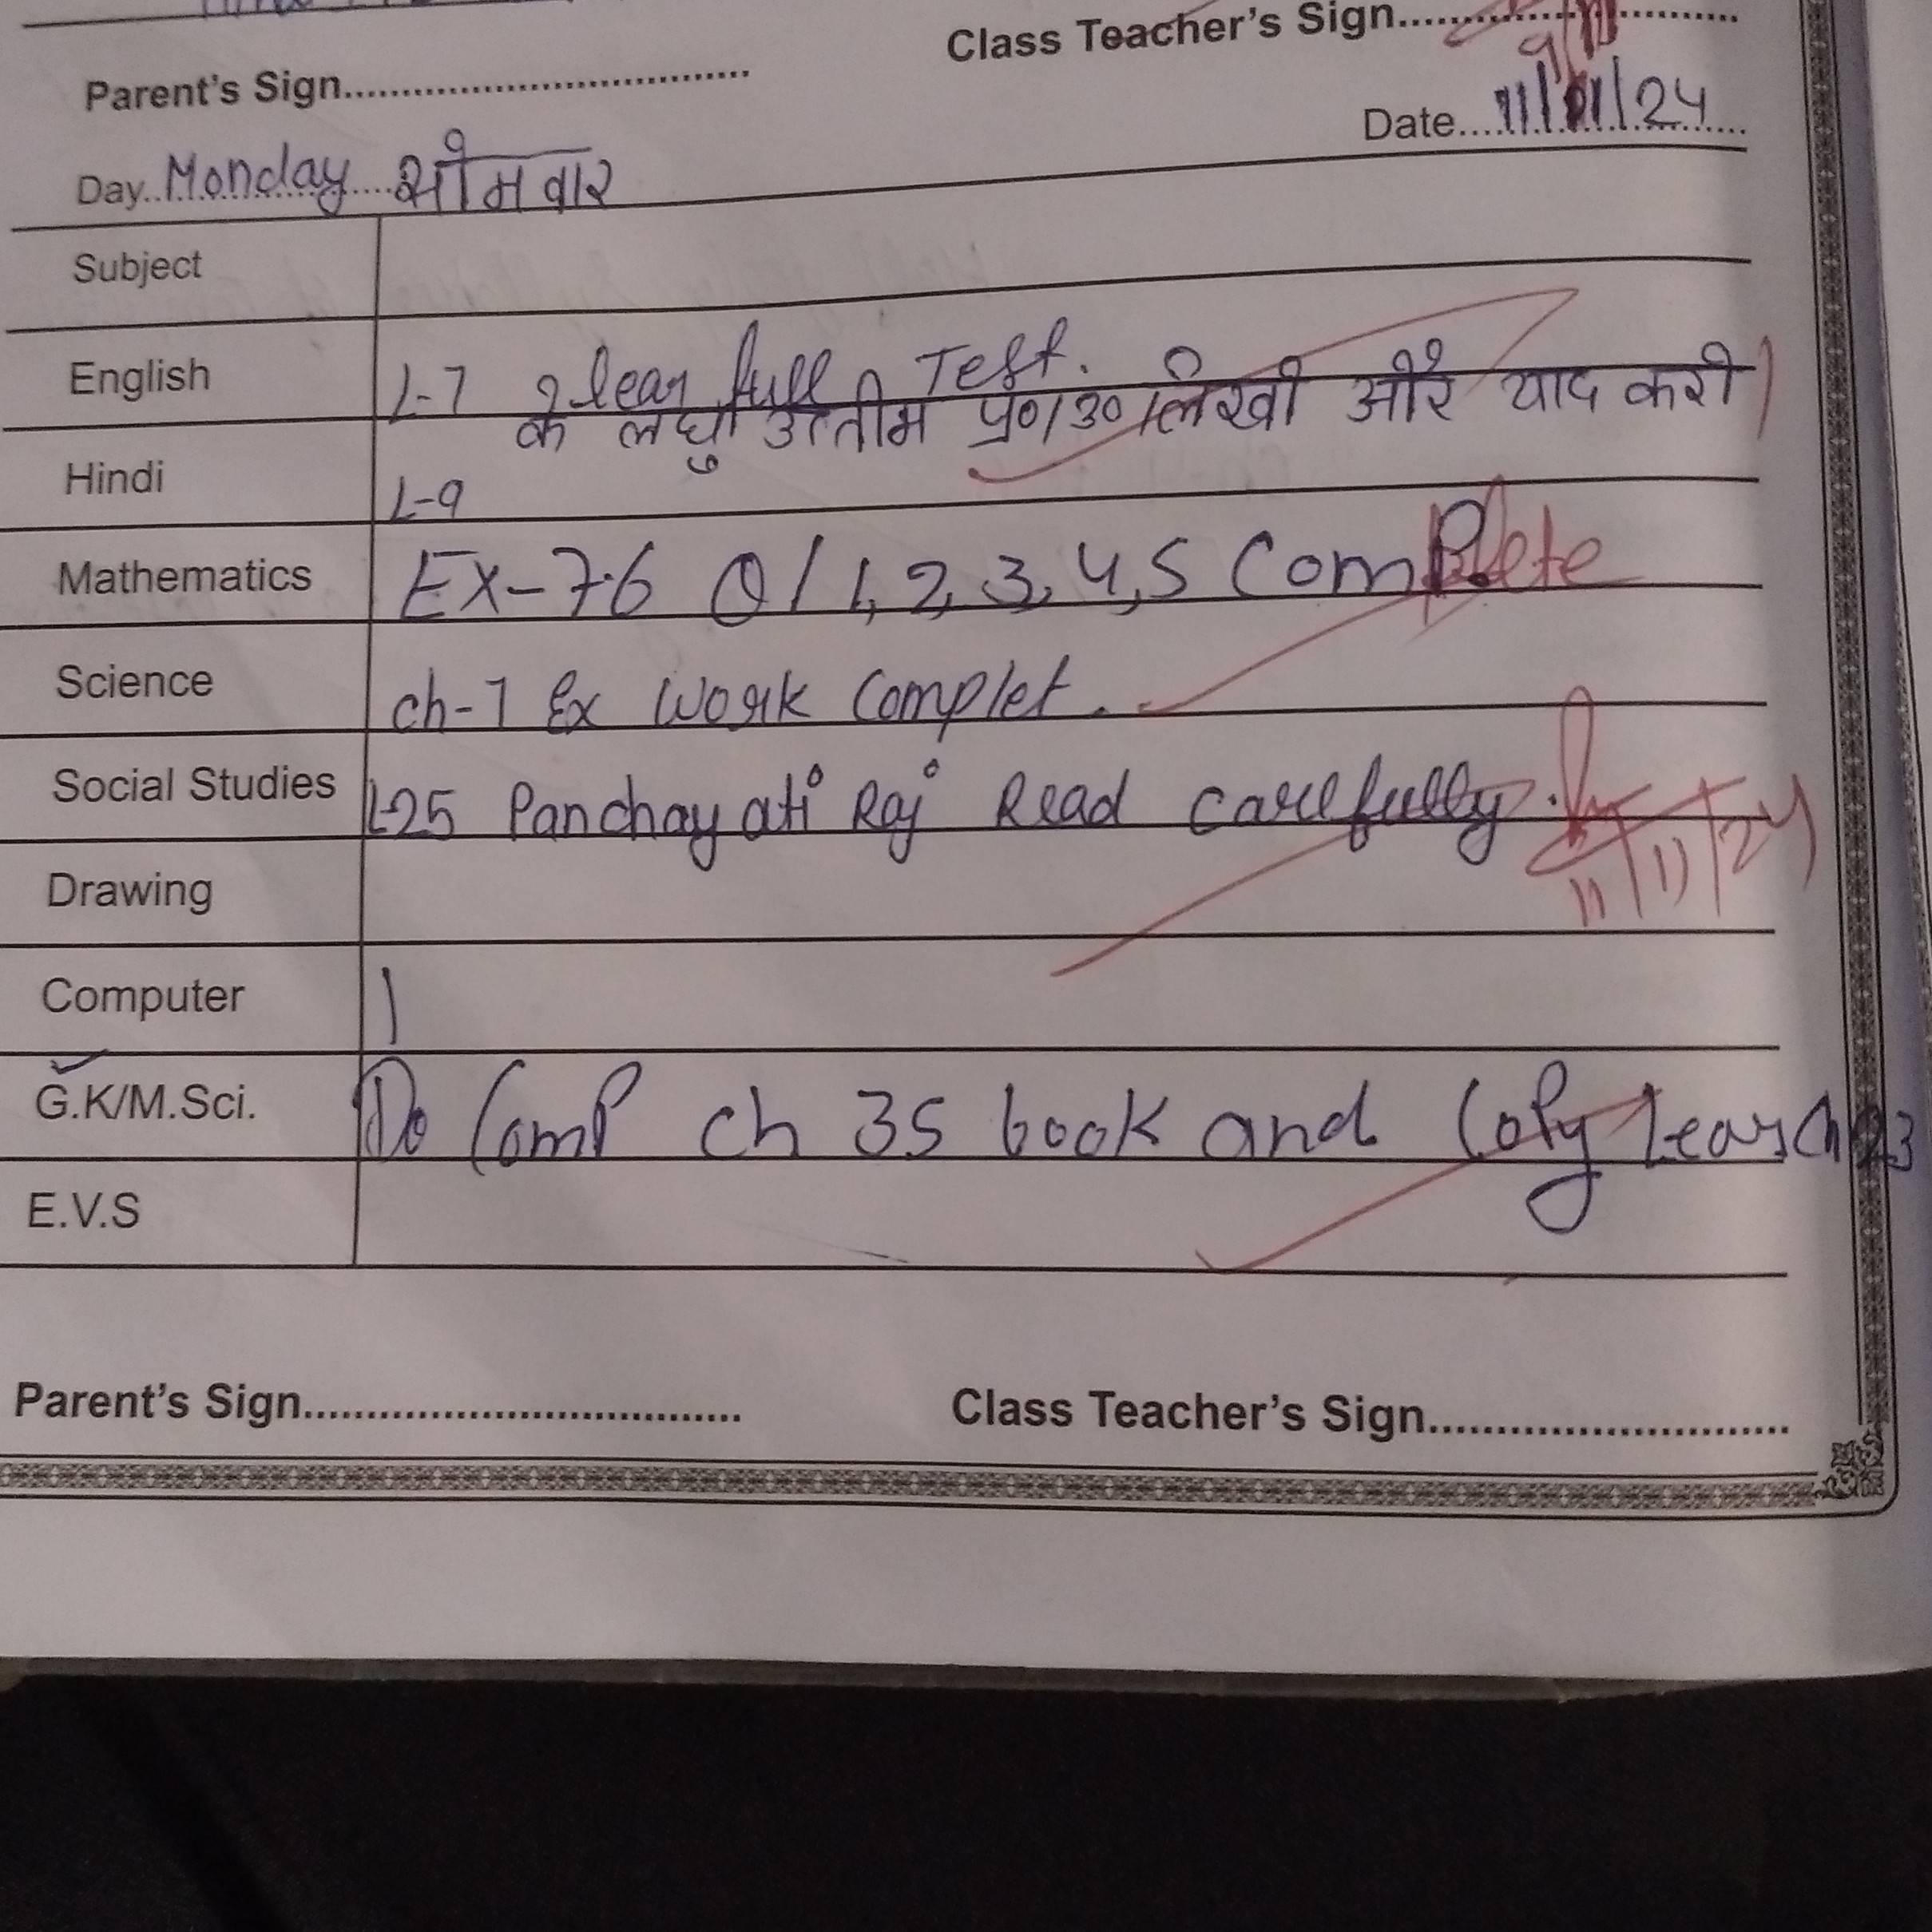 Class Teacher's Sign..............................
Parent's Sign..................................
9/11
Date....11/11/24....
Day..Monday.....सोमवार
Subject
English L-7 learn full Test.
के लघु उत्तीम प्र०/उ० लिखो और याद करो।
Hindi L-9
Mathematics Ex-7.6 Q/ 1, 2, 3, 4, 5 Complete
Science ch-7 Ex Work Complet.
Social Studies L-25 Panchayati Raj Read carefully.
11/11/24
Drawing
Computer
G.K/M.Sci. Do Comp ch 35 book and Copy Learn Ch 23
E.V.S
Parent's Sign.................................... Class Teacher's Sign..............................